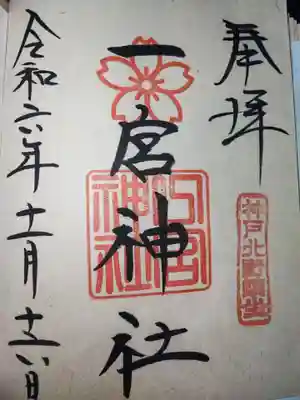 奉拝
神戸北野鎮座
一宮神社
一宮神社
令和六年十一月十六日